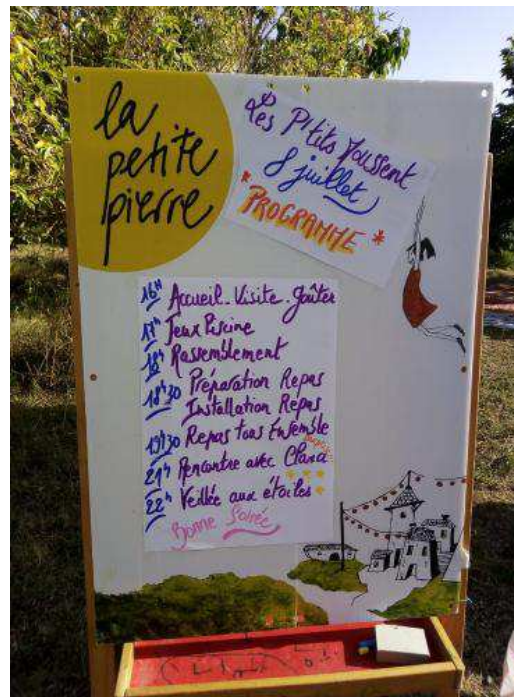 la
petite
pierre
Les P'tits Poussent
8 juillet
* PROGRAMME *
16H Accueil - Visite - Goûter
17h Jeux Piscine
18h Rassemblement
18h30 Préparation Repas
Installation Repas
19h30 Repas tous Ensemble
21h Rencontre avec Clara
22h Veillée aux étoiles
Bonne Soirée